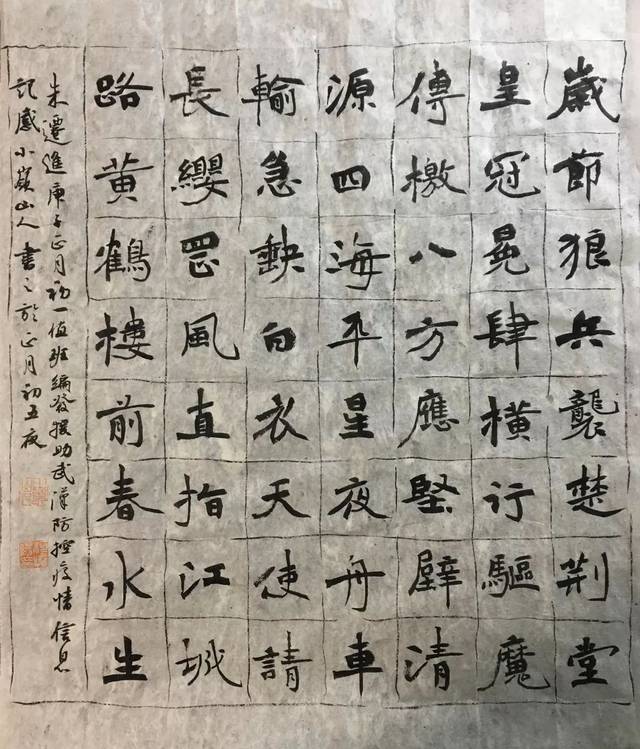 歲節狼兵襲楚荆堂
皇冠冕肆橫行驅魔
傳檄八方應堅壁清
源四海平星夜舟車
輸急缺白衣天使請
長纓罡風直指江城
路黄鶴樓前春水生
朱遷進庚子正月初一值班編發援助武漢防控疫情信息
記感小嶺山人書之於正月初五夜